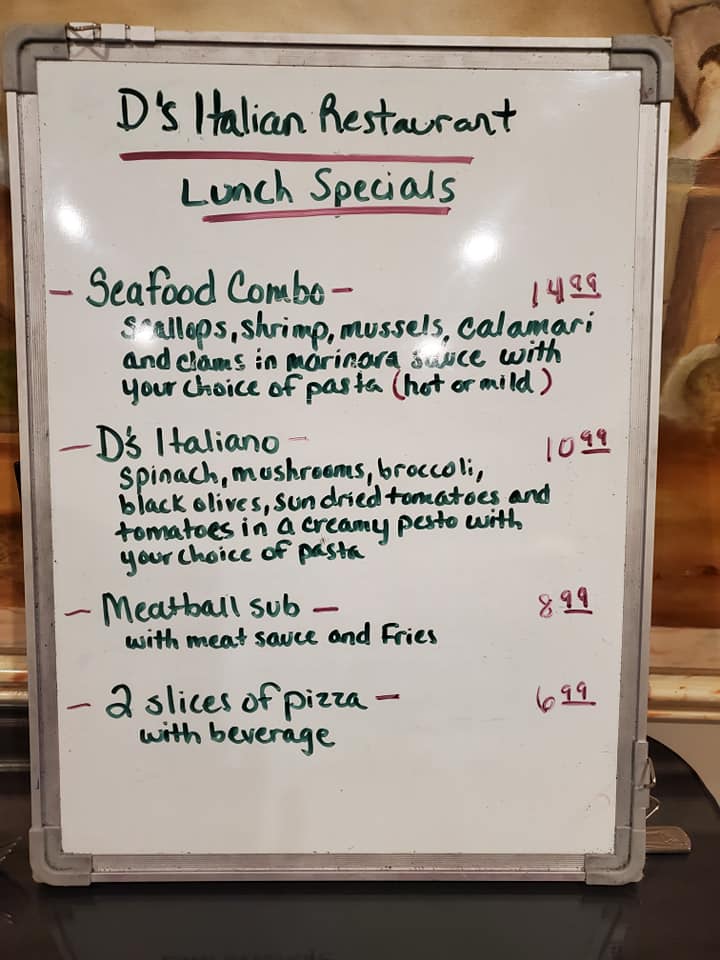 D's Italian Restaurant
Lunch Specials
- Seafood Combo - 14 99
Scallops, shrimp, mussels, calamari
and clams in marinara sauce with
your choice of pasta (hot or mild)
- D's Italiano - 10 99
spinach, mushrooms, broccoli,
black olives, sun dried tomatoes and
tomatoes in a creamy pesto with
your choice of pasta
- Meatball sub - 8 99
with meat sauce and Fries
- 2 slices of pizza - 6 99
with beverage